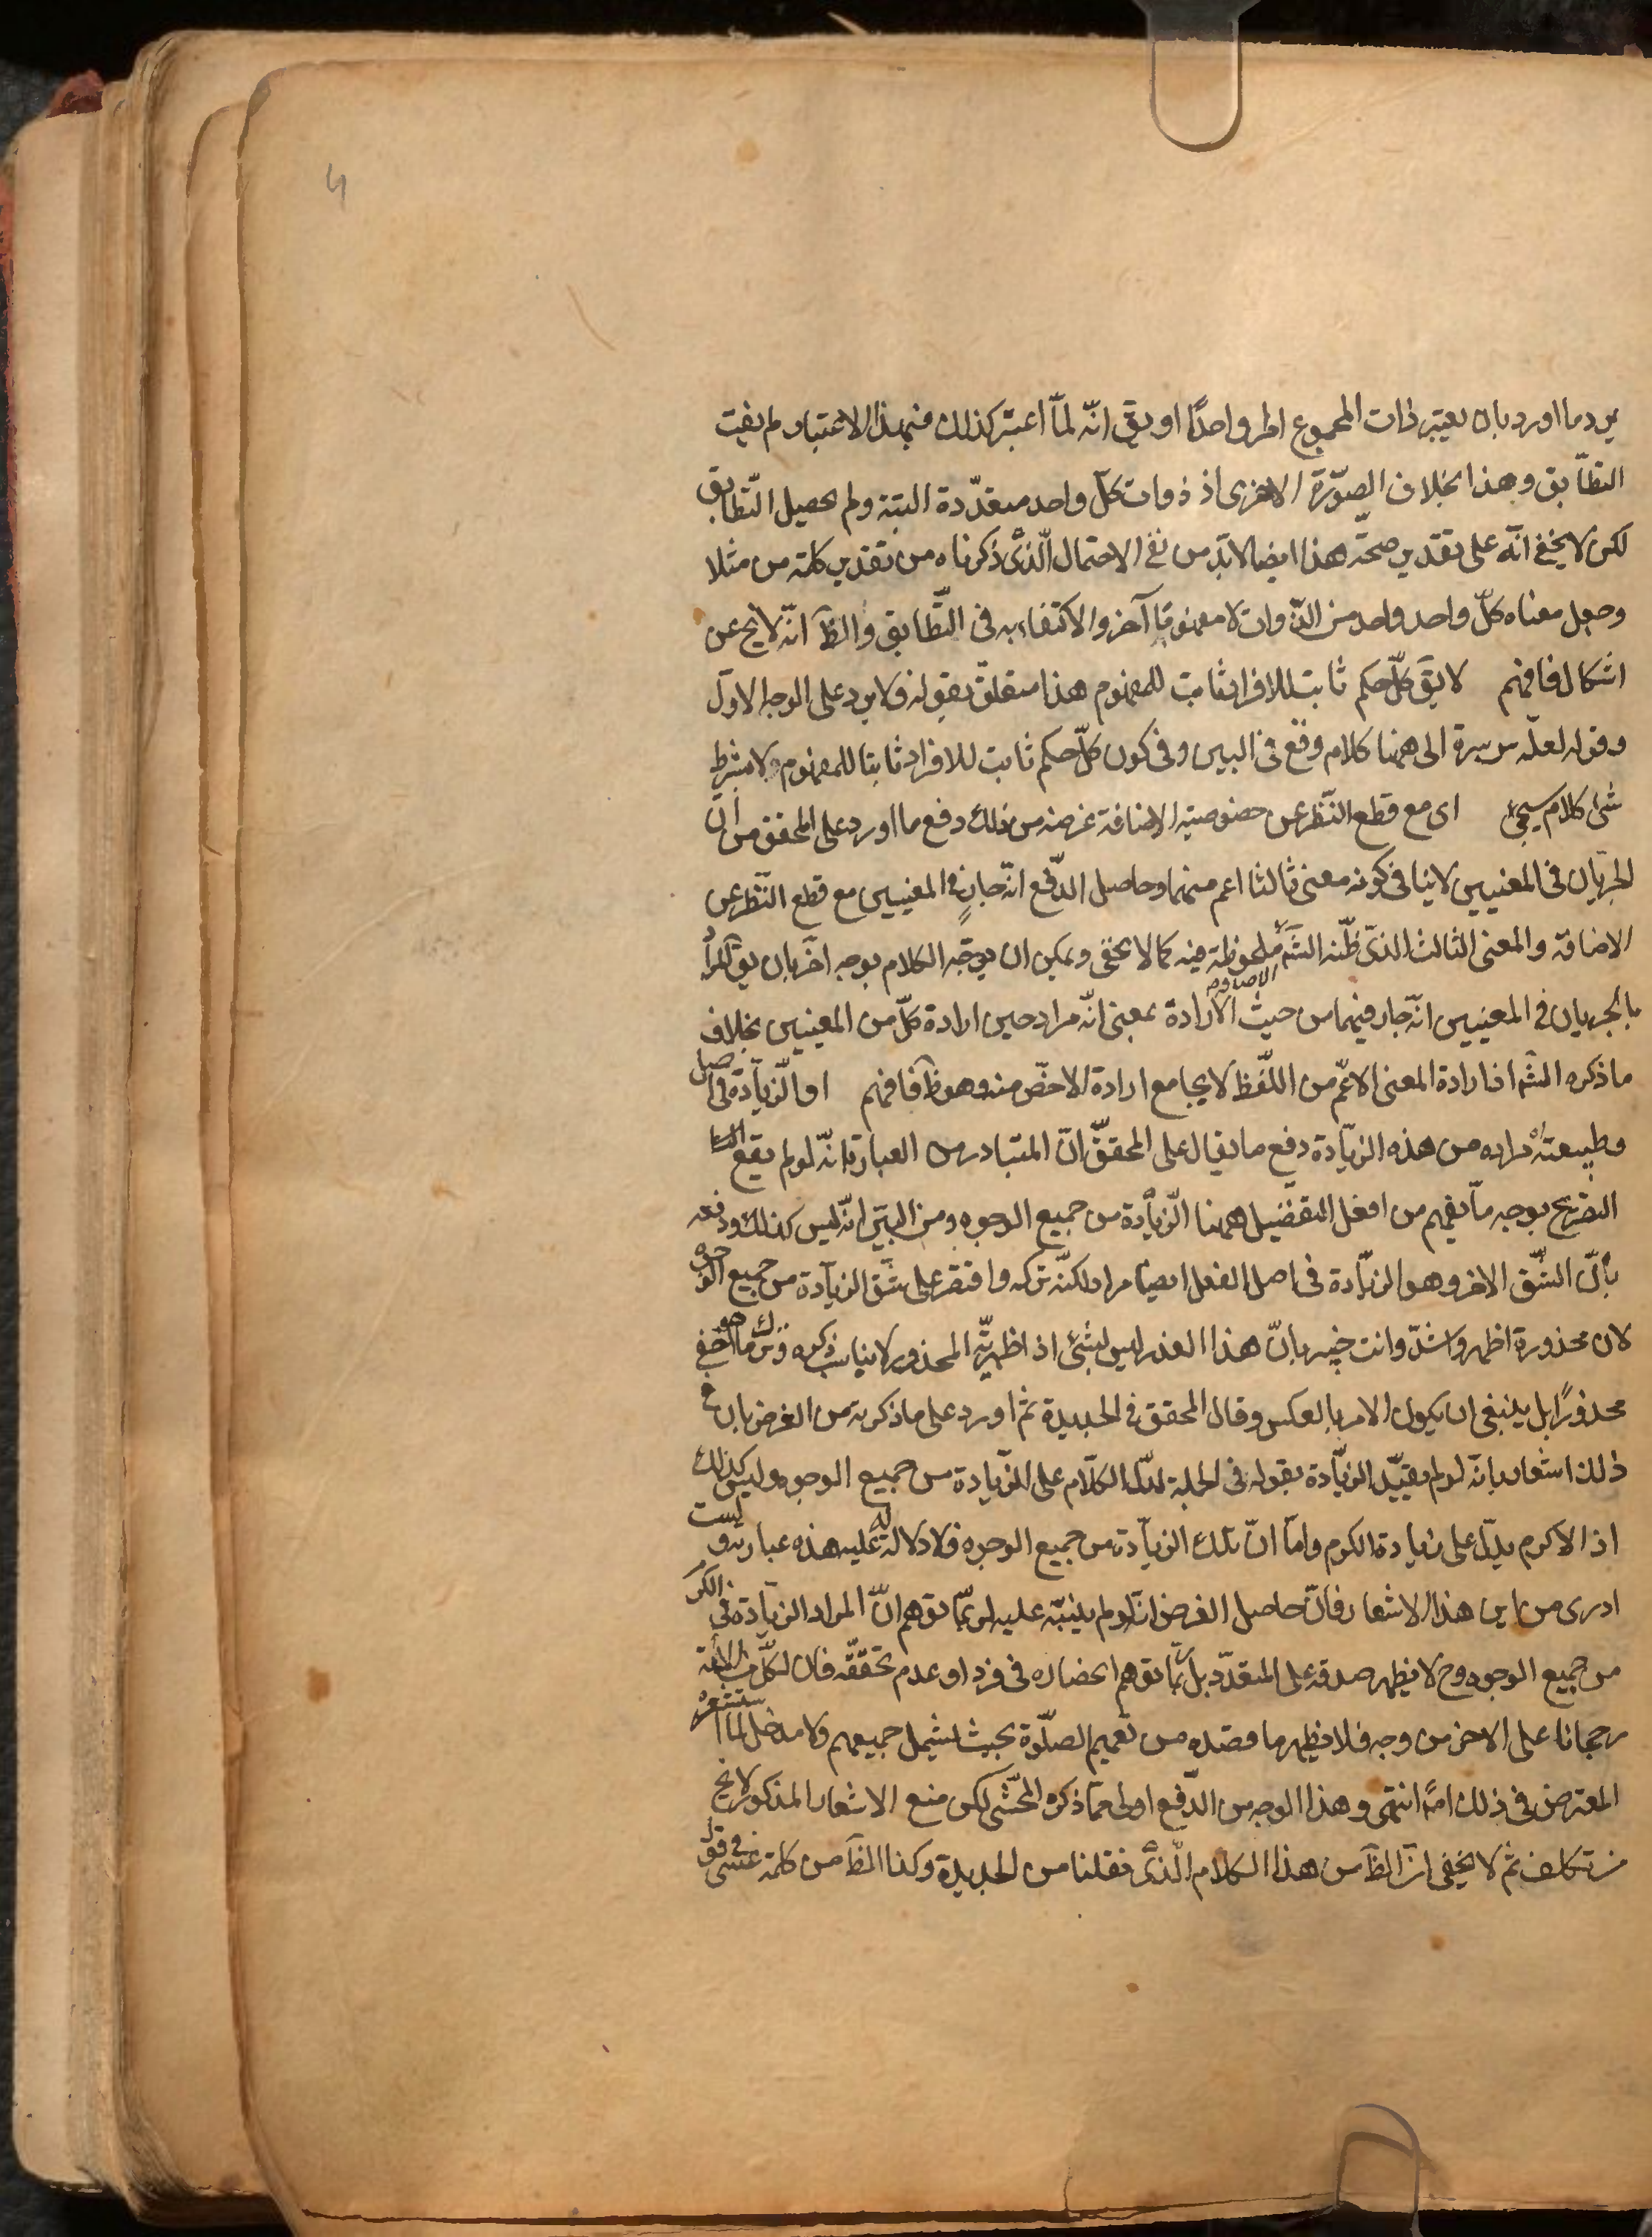 يرد ما اورد بان يعتبر ذات المجموع امر واحدًا او يق انّه لمّا اعتبر كذلك فبهذا الاعتبار لم يفت
التطابق وهذا بخلاف الصّورة الاخرى اذ ذوات كلّ واحد متعدّدة البتة ولم يحصل التّطابق
لكن لا يخفى انّه على تقدير صحّة هذا ايضا لا بدّ من نفى الاحتمال الّذى ذكرناه من تقدير كلمة من مثلا
وجعل معناه كلّ واحد واحد من الذّوات لا مفهوما آخر والاكتفاء به فى التّطابق والظّ انّه لا يخ عن
اشكال فافهم لا يق كلّ حكم ثابت للافراد ثابت للمفهوم هذا متعلّق بقوله ولا يرد على الوجه الاوّل
وقوله لعلّه سره الى ههنا كلام وقع فى البين وفى كون كلّ حكم ثابت للافراد ثابتا للمفهوم لا بشرط
شئ كلام سيجئ اى مع قطع النّظر عن خصوصيّة الاضافة غرضه من ذلك دفع ما اورد على المحقق من انّ
الجريان فى المعنيين لا ينافى كونه معنى ثالثا اعم منهما وحاصل الدّفع انّه جارٍ فى المعنيين مع قطع النّظر عن
الاضافة والمعنى الثالث الذى ظنّه الشّ ملحوظة فيه كما لا يخفى ويمكن ان يوجّه الكلام بوجه اخر بان يق المراد
بالجريان فى المعنيين انّه جار فيهما من حيث الارادة بمعنى انّه مراد حين ارادة كلّ من المعنيين بخلاف
ما ذكره الشّ اذ ارادة المعنى الاعمّ من اللّفظ لا يجامع ارادة الاخصّ منه وهو ظ فافهم او الزّيادة فى اصل
وطبيعته مراده من هذه الزيّادة دفع ما يقال على المحقّق انّ المتبادر من العبارة انّه لو لم يقع
التصريح بوجه ما يفهم من افعل التفضيل ههنا الزّيادة من جميع الوجوه ومن البيّن انّه ليس كذلك ودفعه
بانّ الشّق الاخر وهو الزيّادة فى اصل الفعل ايضا مراد لكنّه تركه واقتصر على شق الزيّادة من جميع الوجوه
لان محذورة اظهر واشدّ وانت خبير بانّ هذا العذر ليس بشئ اذ اظهريّة المحذور لا يناسب ذكره وترك ما هو اخفى
محذورًا بل ينبغى ان يكون الامر بالعكس وقال المحقق فى الجديدة ثمّ اورد على ما ذكرته من الغرض بان فى
ذلك اشعار بانّه لو لم يقيّد الزيّادة بقوله فى الجملة لدلّ الكلام على الزّيادة من جميع الوجوه وليس كذلك
اذ الاكرم يدلّ على زيادة الكرم وامّا انّ تلك الزيّادة من جميع الوجوه فلا دلالة له عليه هذه عبارته ولست
ادرى من اين هذا الاشعار فانّ حاصل الغرض انّه لو لم ينبّه عليه لربّما توهم انّ المراد الزيادة فى الكرم
من جميع الوجوه وح لا يظهر صدقه على المتعدّد بل ربّما توهم انحصاره فى فرد او عدم تحقّقه فان لكلّ من الائمة
رجحانا على الاخر من وجه فلا يظهر ما قصده من تعميم الصلّوة بحيث يشمل جميعهم ولا مدخل لما استشعره
المعترض فى ذلك امّا انتهى وهذا الوجه من الدّفع اولى ممّا ذكره المحّشى لكن منع الاشعار المذكور لا يخ
من تكلف ثم لا يخفى انّ الظّ من هذا الكلام الّذى نقلنا من الجديدة وكذا الظّ من كلمة عسى فى قو